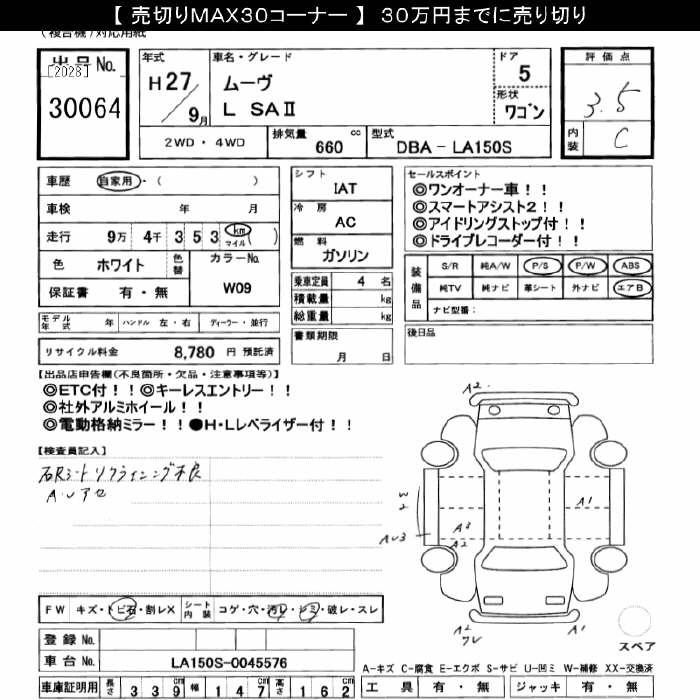 【 売切りMAX30コーナー 】 30万円までに売り切り
(複合機)対応用紙
出品No.
[2028]
30064
年式
H27/9月
車名・グレード
ムーヴ
L SAⅡ
ドア
5
形状
ワゴン
評価点
3.5
内装
C
2WD・4WD
排気量 660 cc
型式 DBA - LA150S
車歴 自家用・( )
車検 年 月
走行 9万 4千 3 5 3 km マイル ( )
色 ホワイト 色替
カラーNo. W09
保証書 有・無
シフト
IAT
冷房
AC
燃料
ガソリン
乗車定員 4 名
積載量 kg
総重量 kg
書類期限
月 日
セールスポイント
◎ワンオーナー車!!
◎スマートアシスト2!!
◎アイドリングストップ付!!
◎ドライブレコーダー付!!
装備品
S/R 純A/W P/S P/W ABS
純TV 純ナビ 革シート 外ナビ エアB
ナビ型番:
後日品
モデル年式 年 ハンドル 左・右 ディーラー・並行
リサイクル料金 8,780 円 預託済
【出品店申告欄(不良箇所・欠品・注意事項等)】
◎ETC付!!◎キーレスエントリー!!
◎社外アルミホイール!!
◎電動格納ミラー!!●H・Lレベライザー付!!
【検査員記入】
右Rシートリクライニング不良
A2
W2
AU3
A3
A2
A1
A2
A1
FW キズ・トビ石・割レX
シート内装 コゲ・穴・汚レ・シミ・破レ・スレ
スペア
登録No.
車台No. LA150S-0045576
A-キズ C-腐食 E-エクボ S-サビ U-凹ミ W-補修 XX-交換済
車庫証明用 長さ 3 3 9 cm 幅 1 4 7 cm 高さ 1 6 2 cm
工具 有・無 ジャッキ 有・無